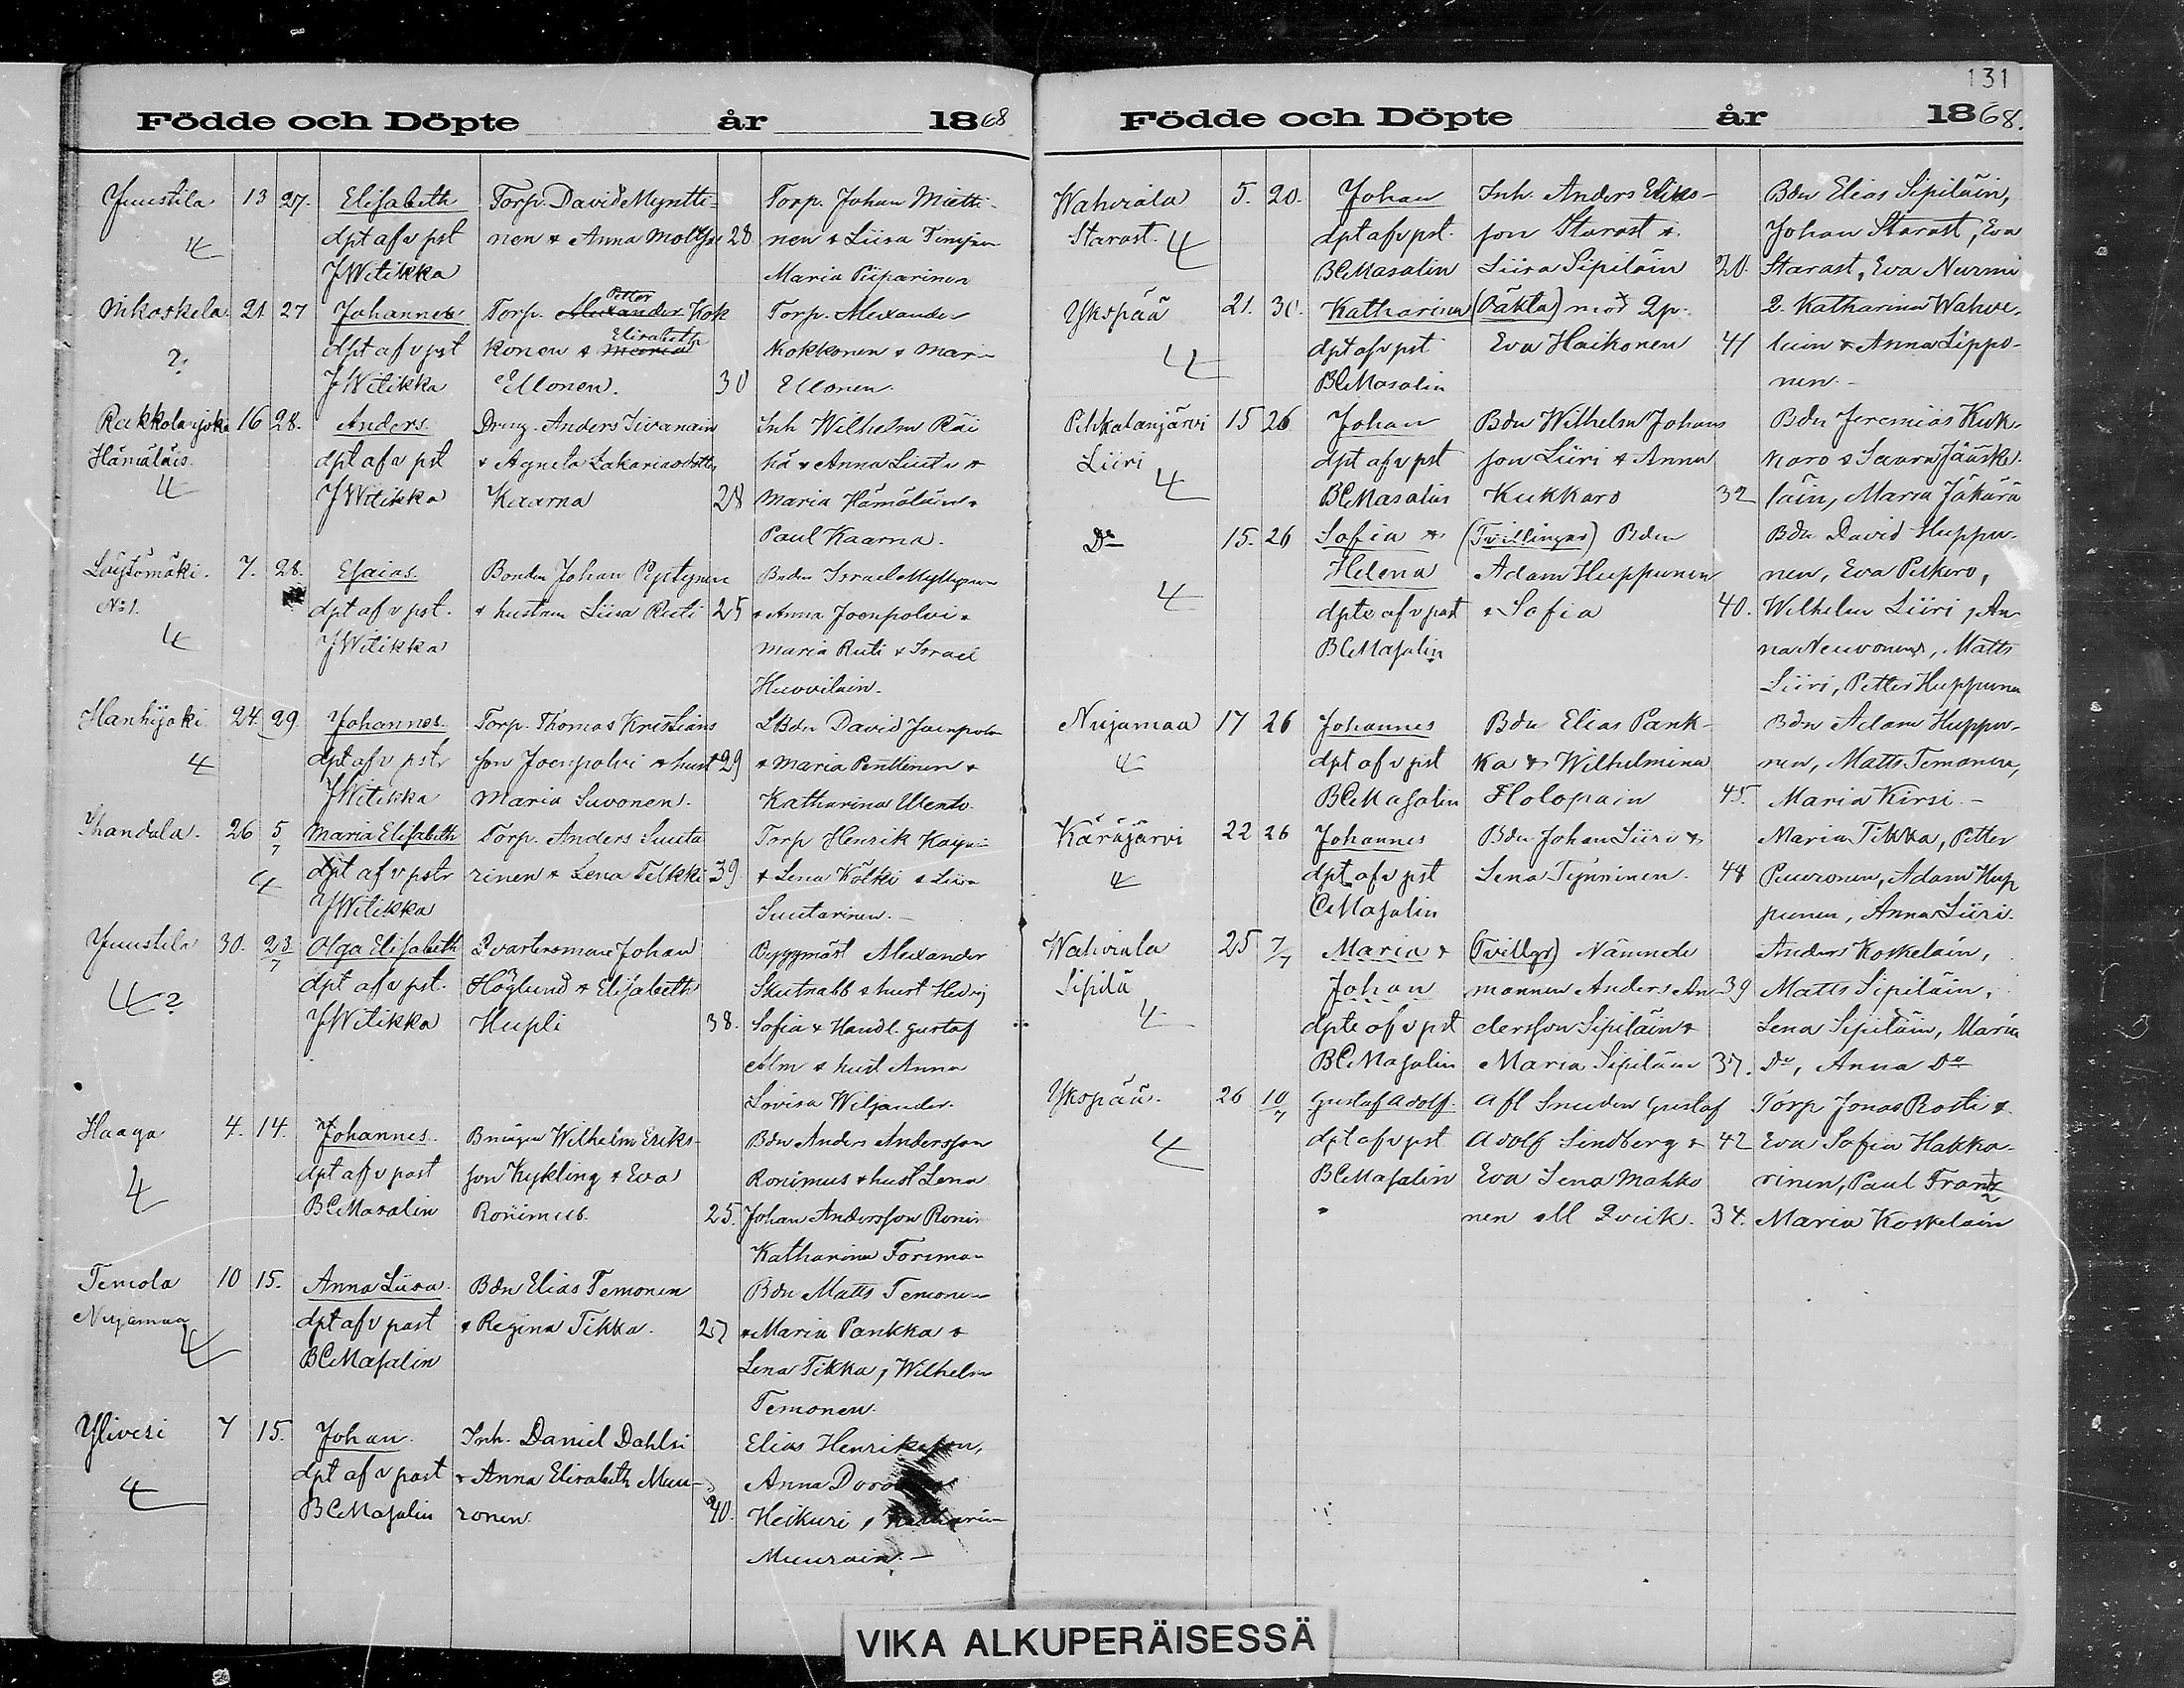 131
Födde och Döpte år 1868
Juustila 13 27. Elisabeth Torp. David Myntti- Torp. Johan Mietti-
4 dpt af v pst nen & Anna Moltsi 28 nen & Liisa
J Witikka Maria Piiparinen
Nikoskela 21 27 Johannes Torp. Petter Alexander Kok Torp. Alexander
? dpt af v pst konen & Elisabeth Maria Kokkonen & Mari-
J Witikka Ellonen. 30 Ellonen.
Rakkolanjoki 16 28. Anders Dreng. Anders Iivanain Inh Wilhelm Räi
Hämäläis dpt af v pst & Agneta Zakariasdotter hä & Anna Liuta &
4 J Witikka Kaarna 28 Maria Hämäläin &
Paul Kaarna.
Löytömäki. 7. 28. Esaias. Bonden Johan Pyytynen Bnden Israel Myllynen
No 1. dpt af v pst. & hustrun Liisa Ruti 25 & Anna Joenpolvi &
4 J Witikka Maria Ruti & Israel
Huovilain.
Hanhijoki 24. 29. Johannes Torp. Thomas Kristians LBdn David Joenpolv
4 dpt af v pstr son Joenpolvi & hust 29 & Maria Penttinen &
J Witikka Maria Suvonen. Katharina Mento.
Ihandala. 26 5/7 Maria Elisabeth Torp. Anders Suuta Torp Henrik
4 dpt af v pstr rinen & Lena Telkki 39 & Lena Kölki & Liisa
J Witikka Suutarinen.-
Juustila 30. 23/7 Olga Elisabeth Qvartersman Johan Byggmäst Alexander
4? dpt af v pst. Höglund & Elisabeth Skutnabb & hust Hedvig
J Witikka Hupli 38. Sofia & Handl. Gustaf
Alm & hust Anna
Lovisa Weljander.
Haaga 4. 14. Johannes. Bnägn Wilhelm Eriks- Bdn Anders Andersson
4 dpt af v past son Kykling & Eva Ronimus & hust Lena
B C Masalin Ronimus. 25. Johan Andersson Ronim
Katharina Forsman
Temola 10 15. Anna Liisa. Bdn Elias Temonen Bdn Matts Temonen
Nujamaa dpt af v past & Regina Tikka. 27 & Maria Pankka &
4 B C Masalin Lena Tikka, Wilhelm
Temonen.
Ylivesi 7 15. Johan. Inh. Daniel Dahlsi Elias Henriksson,
4 dpt af v past & Anna Elisabeth Muu- Anna
B C Masalin ronen. 40. Heikuri,
Muurain.-
Födde och Döpte år 1868.
Wahviala 5. 20. Johan Inh. Anders Elias- Bdn Elias Sipiläin,
Starast. 4 dpt af v pst. son Starast & Johan Starast, Eva
B C Masalin Liisa Sipiläin 20. Starast, Eva Nurmi
Ykspää 21. 30. Katharina (Oäkta) mod Qp. 2. Katharina Wahve-
4 dpt af v pst Eva Haikonen 41 lain & Anna Lippo-
B C Masalin nen.-
Pihkalanjärvi 15 26 Johan Bdn Wilhelm Johans Bdn Jeremias Kuk-
Liiri dpt af v pst son Liiri & Anna karo & Saara Jääske-
4 B C Masalin Kukkaro 32 läin, Maria Jäkärä
Do 15. 26 Sofia & (Tvillingar) Bdn Bdn David Huppu-
Helena Adam Huppunen nen, Eva Peskero,
4 dpte af v past & Sofia 40. Wilhelm Liiri, An-
B C Masalin na Neuvonen, Matts
Liiri, Petter Huppunen
Nujamaa 17 26 Johannes Bdn Elias Pank- Bdn Adam Huppu-
4 dpt af v pst ka & Wilhelmina nen, Matts Temonen,
B C Masalin Holopain 45. Maria Kirsi.-
Kärajärvi 22 26 Johannes Bdn Johan Liiri & Maria Tikka, Petter
4 dpt af v pst Lena Tynninen. 44 Peuronen, Adam Hup
C Masalin punen, Anna Liiri.
Wahviala 25 7/7 Maria & (Tvillgr) Nämnde Anders Koskelain,
Sipilä Johan mannen Anders An 39 Matts Sipiläin,
4 dpte af v pst dersson Sipiläin & Lena Sipiläin, Maria
B C Masalin Maria Sipiläin 37. Do, Anna Do
Ykspää. 26 10/7 Gustaf Adolf. Afl Smeden Gustaf Torp Jonas Rosti &
4 dpt af v pst Adolf Lindberg & 42 Eva Sofia Hakka-
B C Masalin Eva Lena Mahko rinen, Paul Frantz
nen M Qvick. 34. Maria Koskelain
VIKA ALKUPERÄISESSÄ